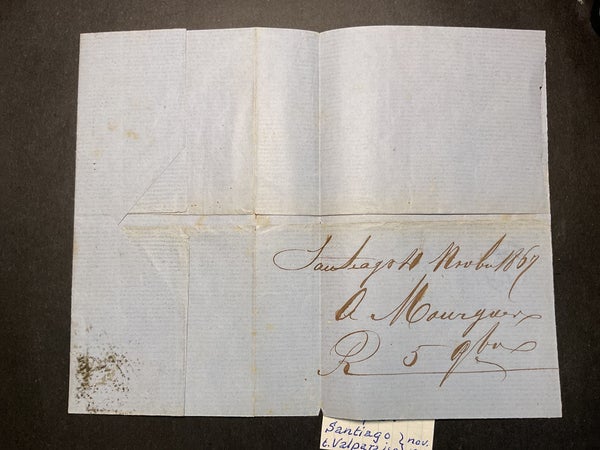 Santiago 4 Novbre 1857
A Mourgues
R 5 9bre
Santiago } nov.
t. Valparaiso